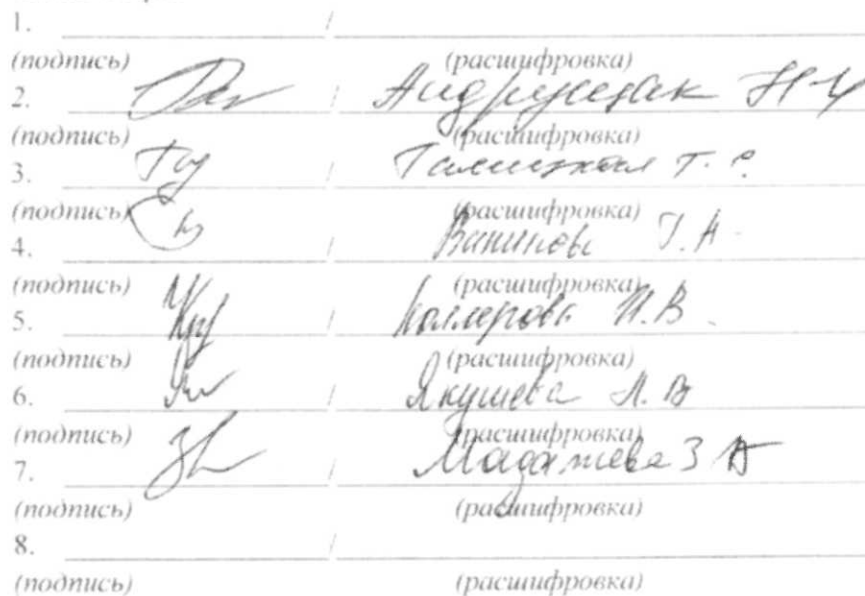 1. /
(подпись) (расшифровка)
2. / Андрущак Н.Ч
(подпись) (расшифровка)
3. / Галицкая Т. С.
(подпись) (расшифровка)
4. / Ванинова Г.А.
(подпись) (расшифровка)
5. / И.В.
(подпись) (расшифровка)
6. / Якушева Л.В
(подпись) (расшифровка)
7. / З
(подпись) (расшифровка)
8. /
(подпись) (расшифровка)